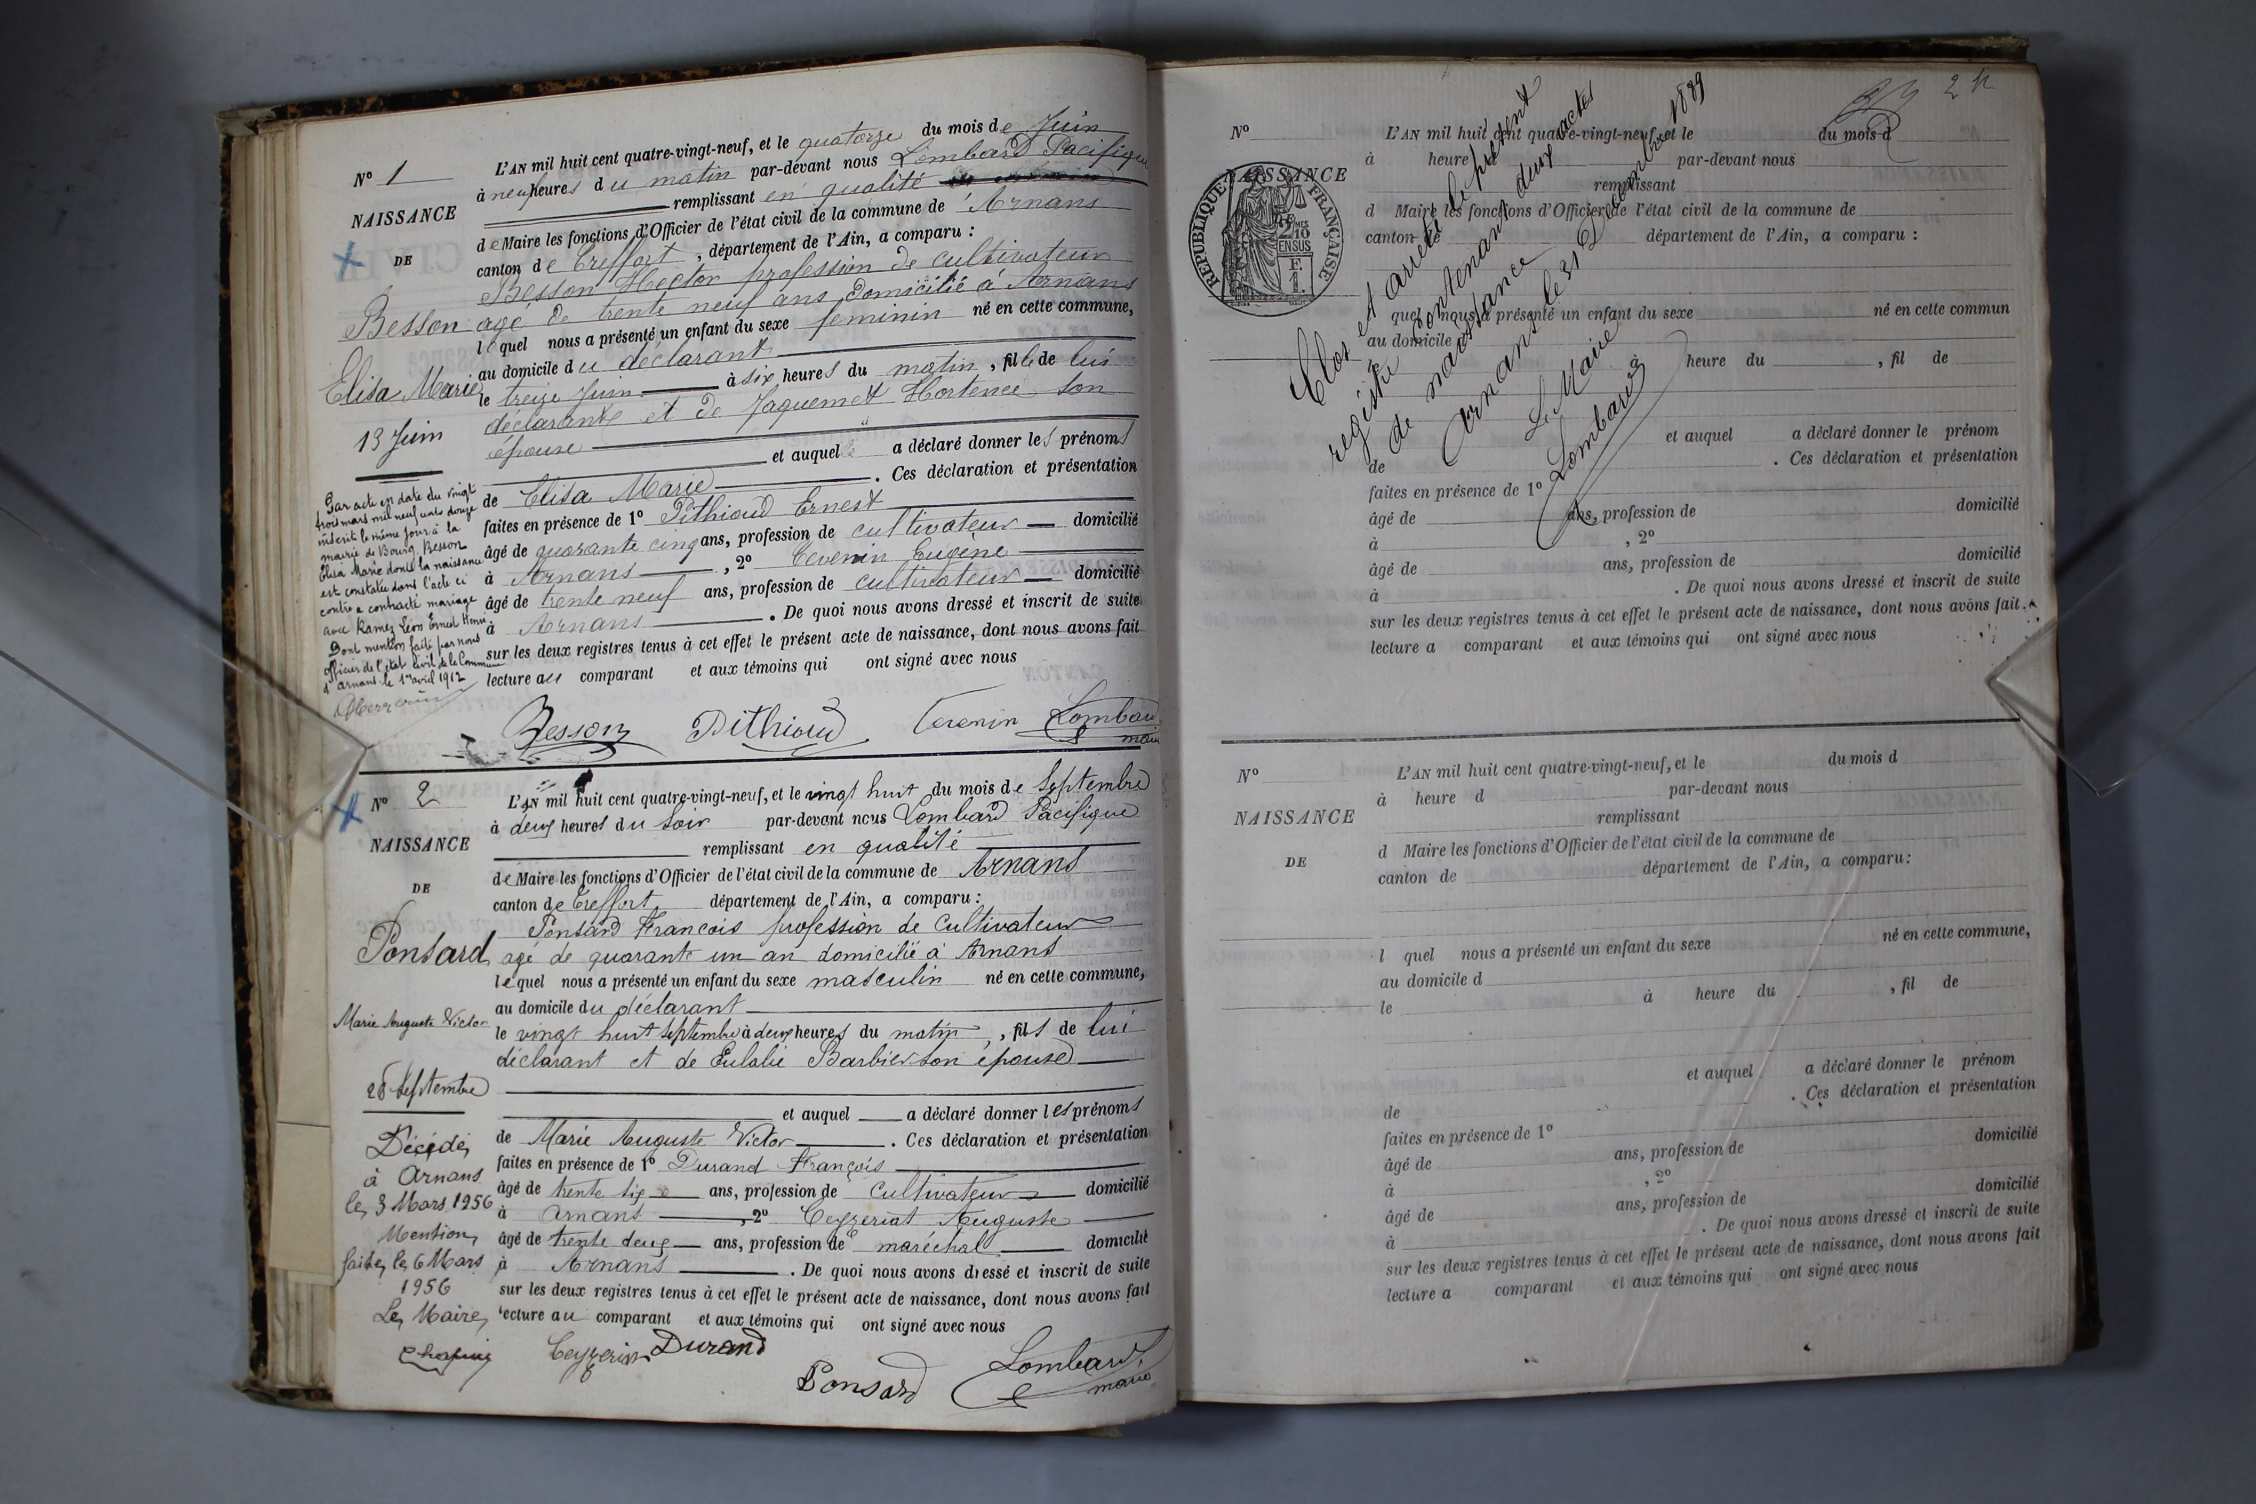 N° 1
NAISSANCE
DE
Besson
Elisa Marie
13 Juin
Par acte en date du vingt
trois mars mil neuf cent douze
inscrit le même jour à la
mairie de Bourg, Besson
Elisa Marie dont la naissance
est constatée dans l'acte ci
contre a contracté mariage
avec Ramez Léon Ernest Henri
Dont mention faite par nous
officier de l'état civil de la Commune
d'Arnans le 1er avril 1912
L'AN mil huit cent quatre-vingt-neuf, et le quatorze du mois de Juin
à neuf heures du matin par-devant nous Lombard Pacifique
remplissant en qualité
de Maire les fonctions d'Officier de l'état civil de la commune de Arnans
canton de Treffort, département de l'Ain, a comparu :
Besson Hector profession de cultivateur
agé de trente neuf ans domicilié à Arnans
lequel nous a présenté un enfant du sexe feminin né en cette commune,
au domicile du déclarant
le treize Juin à six heures du matin, fille de lui
déclarant et de Jaquemet Hortence son
épouse
et auquel a déclaré donner les prénoms
de Elisa Marie. Ces déclaration et présentation
faites en présence de 1° Pithioud Ernest
âgé de quarante cinq ans, profession de cultivateur domicilié
à Arnans, 2° Tevenin Eugène
âgé de trente neuf ans, profession de cultivateur domicilié
à Arnans. De quoi nous avons dressé et inscrit de suite
sur les deux registres tenus à cet effet le présent acte de naissance, dont nous avons fait
lecture au comparant et aux témoins qui ont signé avec nous
Besson Pithioud Tevenin Lombard
maire
N° 2
NAISSANCE
DE
Ponsard
Marie Auguste Victor
28 Septembre
Décédé
à Arnans
le 3 Mars 1956
Mention
faite le 6 Mars
1956
Le Maire
L'AN mil huit cent quatre-vingt-neuf, et le vingt huit du mois de Septembre
à deux heures du soir par-devant nous Lombard Pacifique
remplissant en qualité
de Maire les fonctions d'Officier de l'état civil de la commune de Arnans
canton de Treffort département de l'Ain, a comparu :
Ponsard Francois profession de Cultivateur
agé de quarante un an domicilié à Arnans
lequel nous a présenté un enfant du sexe masculin né en cette commune,
au domicile du déclarant
le vingt huit Septembre à deux heures du matin, fils de lui
déclarant et de Eulalie Barbier son épouse
et auquel a déclaré donner les prénoms
de Marie Auguste Victor. Ces déclaration et présentation
faites en présence de 1° Durand François
âgé de trente six ans, profession de Cultivateur domicilié
à Arnans, 2° Ceyzeriat Auguste
âgé de trente deux ans, profession de maréchal domicilié
à Arnans. De quoi nous avons dressé et inscrit de suite
sur les deux registres tenus à cet effet le présent acte de naissance, dont nous avons fait
lecture au comparant et aux témoins qui ont signé avec nous
Ceyzeriat Durand
Ponsard Lombard
maire
2
N°
NAISSANCE
RÉPUBLIQUE FRANÇAISE
2/10 EN SUS
F. 1.
L'AN mil huit cent quatre-vingt-neuf, et le du mois d
à heure par-devant nous
remplissant
d Maire les fonctions d'Officier de l'état civil de la commune de
canton de département de l'Ain, a comparu :
quel nous a présenté un enfant du sexe né en cette commun
au domicile
à heure du , fil de
et auquel a déclaré donner le prénom
de . Ces déclaration et présentation
faites en présence de 1°
âgé de ans, profession de domicilié
à , 2°
âgé de ans, profession de domicilié
à . De quoi nous avons dressé et inscrit de suite
sur les deux registres tenus à cet effet le présent acte de naissance, dont nous avons fait
lecture a comparant et aux témoins qui ont signé avec nous
Clos et arrêté le présent
registre contenant deux actes
de naissance
Arnans le 31 Décembre 1889
Le Maire
Lombard
N°
NAISSANCE
DE
L'AN mil huit cent quatre-vingt-neuf, et le du mois d
à heure d par-devant nous
remplissant
d Maire les fonctions d'Officier de l'état civil de la commune de
canton de département de l'Ain, a comparu :
l quel nous a présenté un enfant du sexe né en cette commune,
au domicile d
le à heure du , fil de
et auquel a déclaré donner le prénom
de . Ces déclaration et présentation
faites en présence de 1°
âgé de ans, profession de domicilié
à , 2°
âgé de ans, profession de domicilié
à . De quoi nous avons dressé et inscrit de suite
sur les deux registres tenus à cet effet le présent acte de naissance, dont nous avons fait
lecture a comparant et aux témoins qui ont signé avec nous